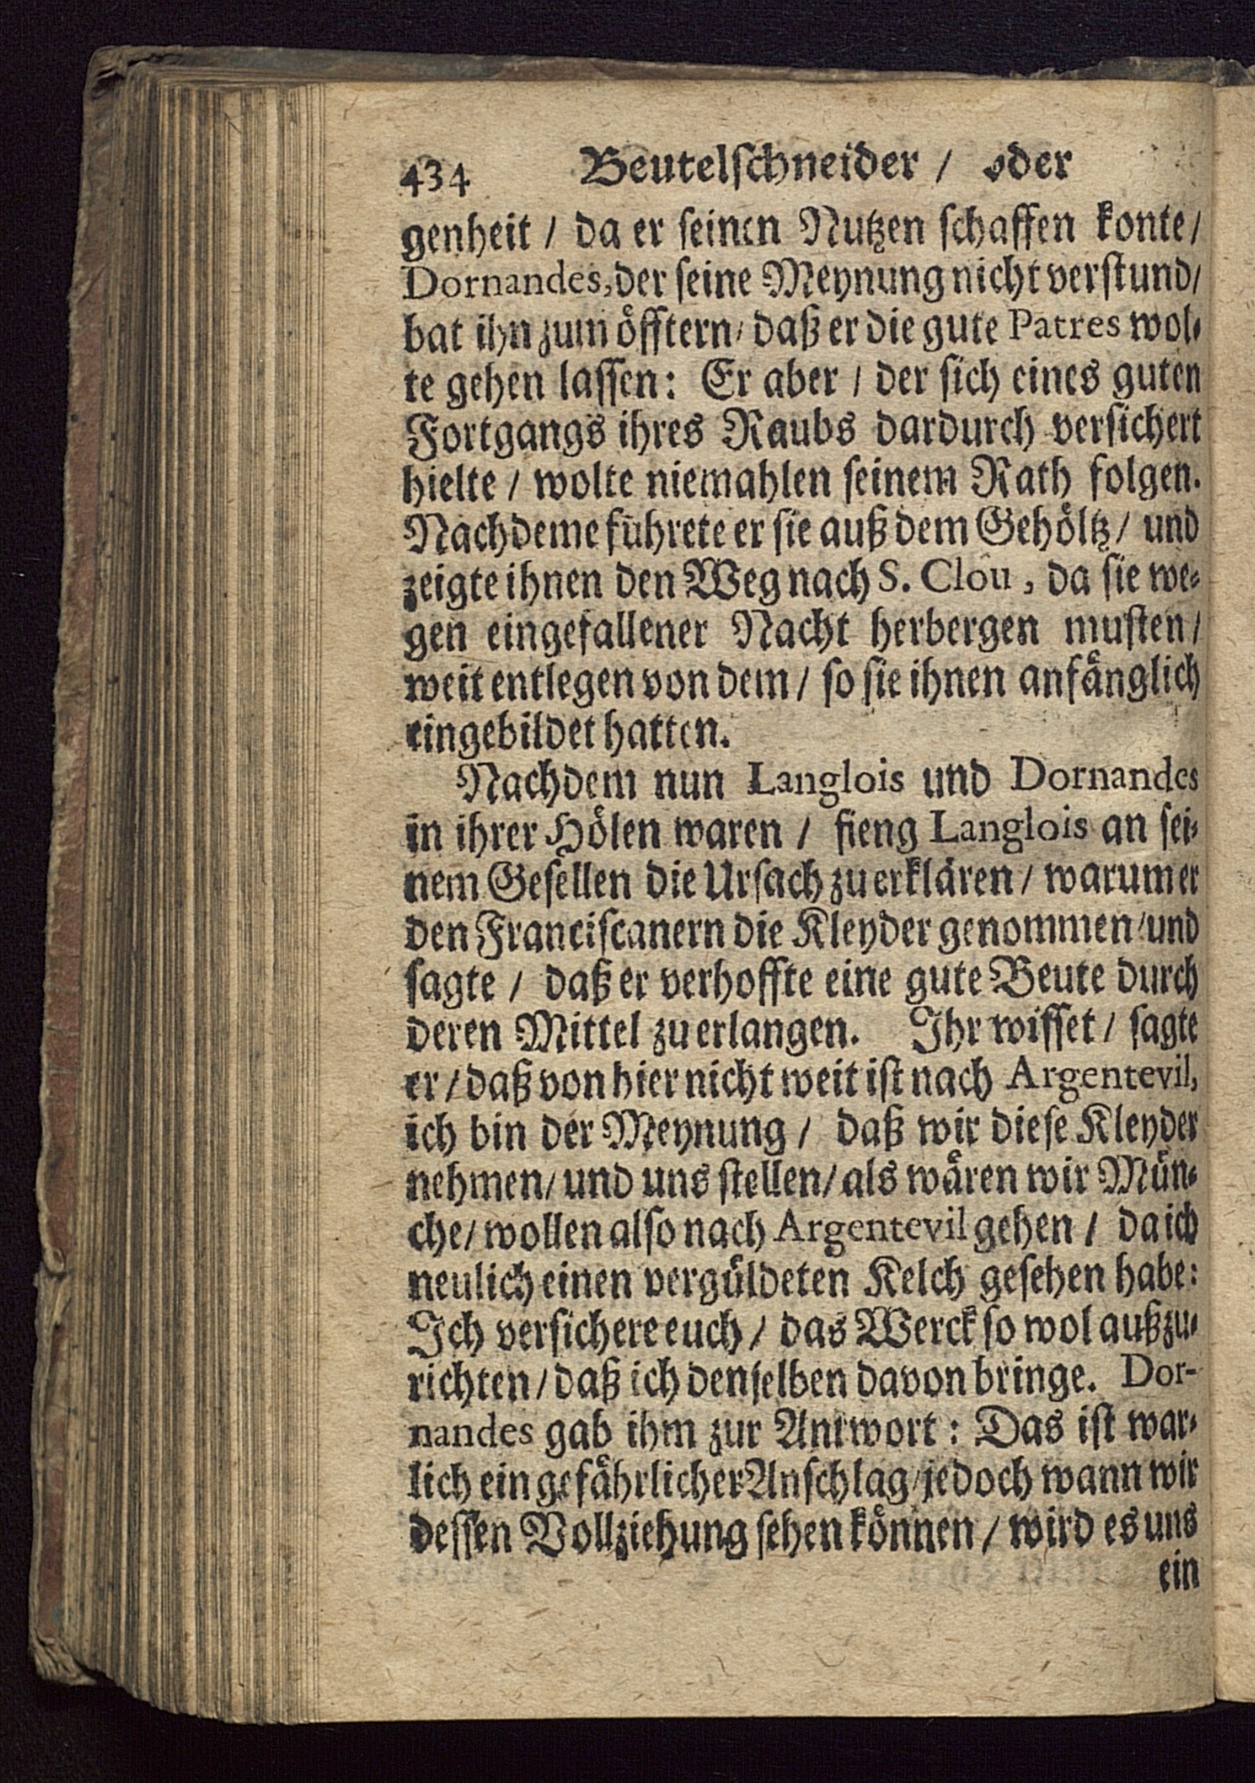 434 Beutelschneider / oder
genheit / da er seinen Nutzen schaffen konte /
Dornandes, der seine Meynung nicht verstund /
bat ihn zum öfftern / daß er die gute Patres wol-
te gehen lassen: Er aber / der sich eines guten
Fortgangs ihres Raubs dardurch versichert
hielte / wolte niemahlen seinem Rath folgen.
Nachdeme führete er sie auß dem Gehöltz / und
zeigte ihnen den Weg nach S. Clou, da sie we-
gen eingefallener Nacht herbergen musten /
weit entlegen von dem / so sie ihnen anfänglich
eingebildet hatten.
Nachdem nun Langlois und Dornandes
in ihrer Hölen waren / fieng Langlois an sei-
nem Gesellen die Ursach zu erklären / warum er
den Franciscanern die Kleyder genommen / und
sagte / daß er verhoffte eine gute Beute durch
deren Mittel zu erlangen. Ihr wisset / sagte
er / daß von hier nicht weit ist nach Argentevil,
ich bin der Meynung / daß wir diese Kleyder
nehmen / und uns stellen / als wären wir Mün-
che / wollen also nach Argentevil gehen / da ich
neulich einen vergüldeten Kelch gesehen habe:
Ich versichere euch / das Werck so wol außzu-
richten / daß ich denselben davon bringe. Dor-
nandes gab ihm zur Antwort: Das ist war-
lich ein gefährlicher Anschlag / jedoch wann wir
dessen Vollziehung sehen können / wird es uns
ein